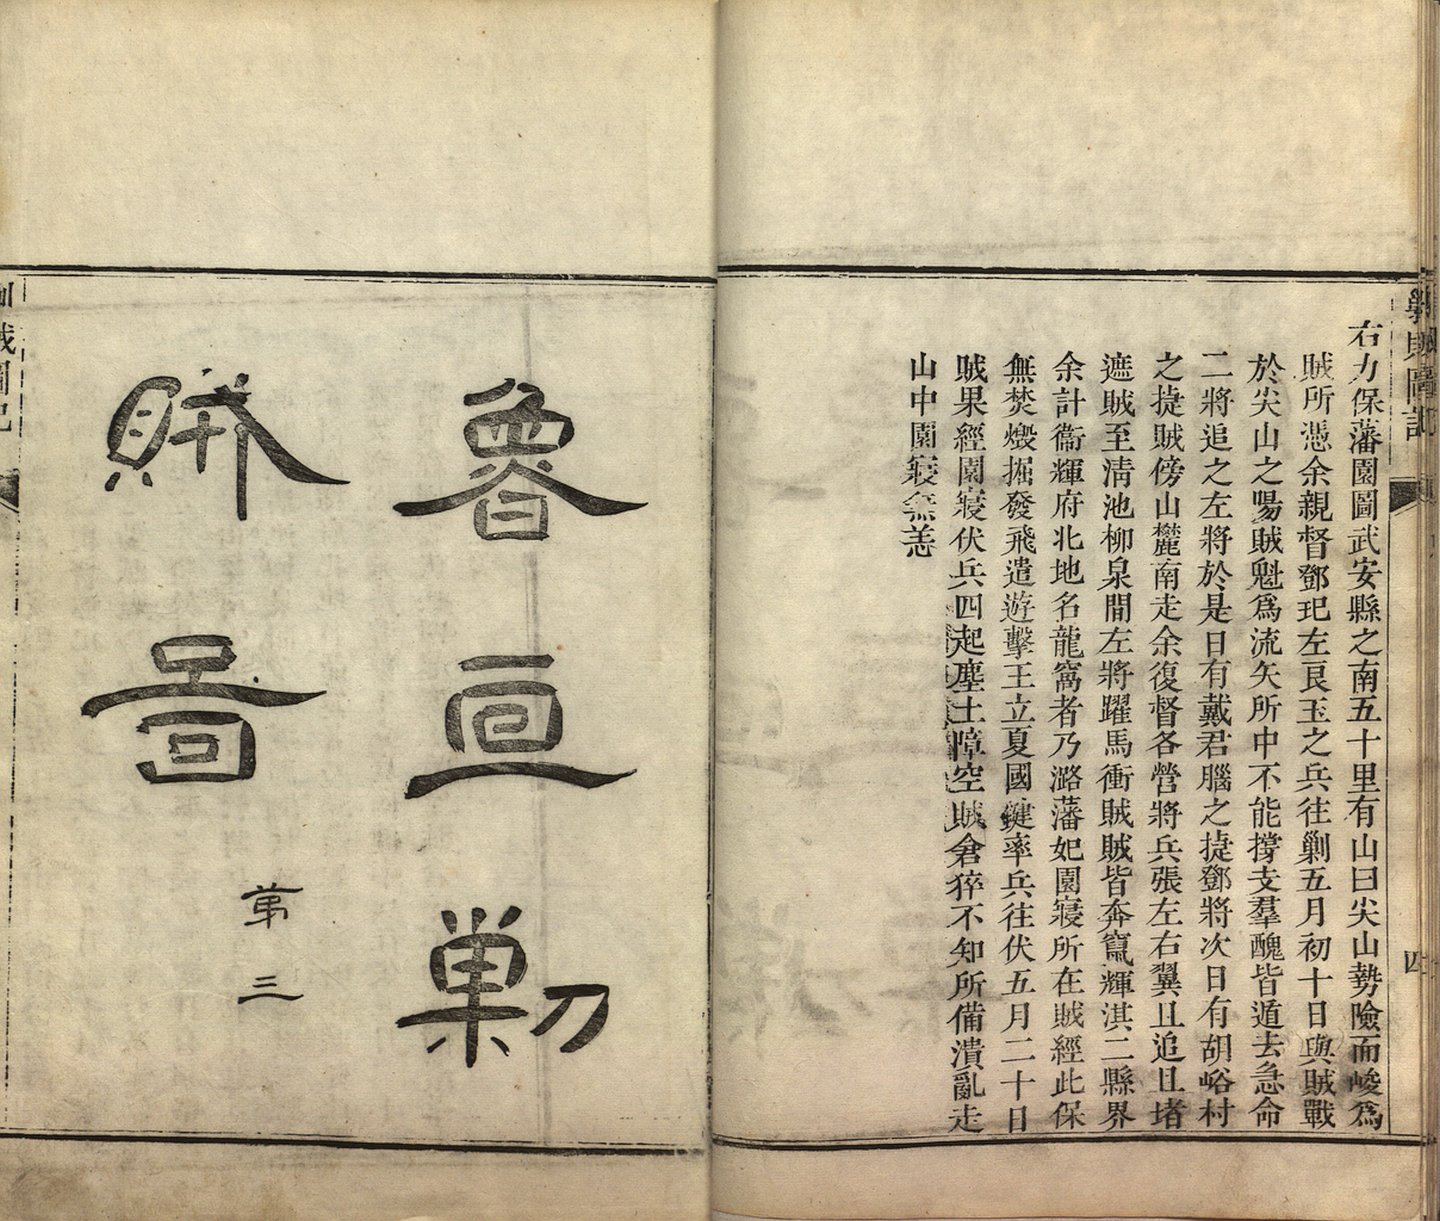 剿賊圖記
四
右力保藩園圖武安縣之南五十里有山曰尖山勢險而峻爲
賊所憑余親督鄧玘左良玉之兵往剿五月初十日與賊戰
於尖山之陽賊魁爲流矢所中不能撐支羣醜皆遁去急命
二將追之左將於是日有戴君腦之捷鄧將次日有胡峪村
之捷賊傍山麓南走余復督各營將兵張左右翼且追且堵
遮賊至淸池柳泉間左將躍馬衝賊賊皆奔竄輝淇二縣界
余計衞輝府北地名龍窩者乃潞藩妃園寢所在賊經此保
無焚燬掘發飛遣遊擊王立夏國鍵率兵往伏五月二十日
賊果經園寢伏兵四起塵土障空賊倉猝不知所備潰亂走
山中園寢無恙
魯亘剿
賊圖
第三
賊圖記